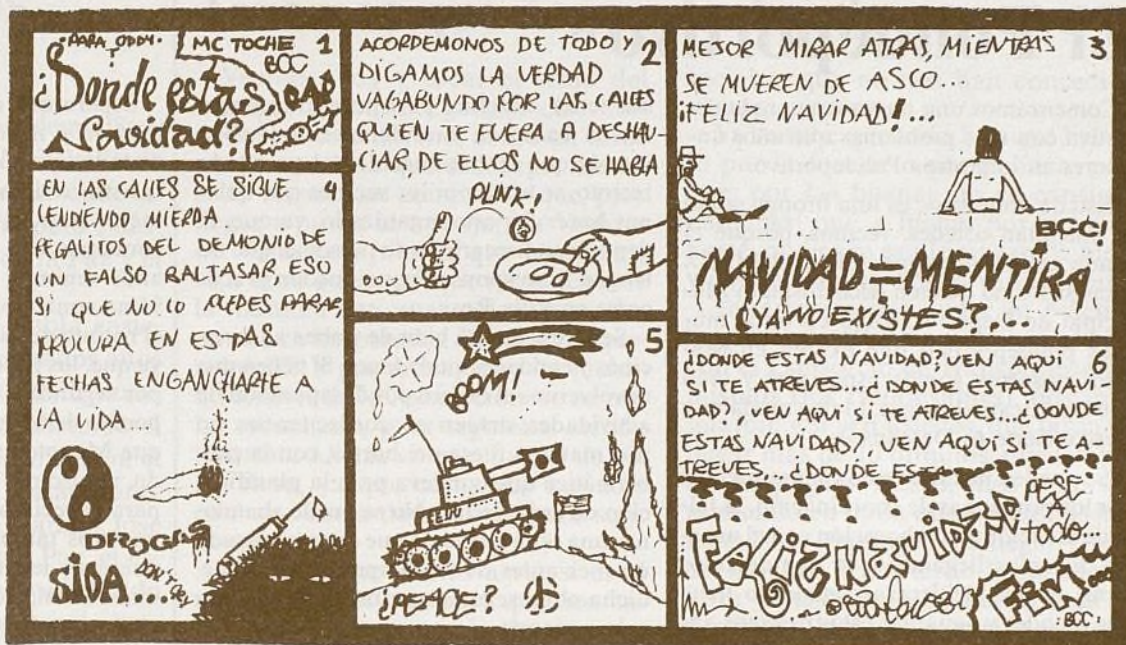 ·PARA ODDY·
MC TOCHE 1
BCC
¿Donde estas,
Navidad?
RAP
ACORDEMONOS DE TODO Y 2
DIGAMOS LA VERDAD
VAGABUNDO POR LAS CALLES
QUIEN TE FUERA A DESHAU-
CIAR, DE ELLOS NO SE HABLA
PLINK,
MEJOR MIRAR ATRÁS, MIENTRAS 3
SE MUEREN DE ASCO...
¡FELIZ NAVIDAD!...
BCC!
NAVIDAD=MENTIRA
¿YA NO EXISTES?...
EN LAS CALLES SE SIGUE 4
VENDIENDO MIERDA
REGALITOS DEL DEMONIO DE
UN FALSO BALTASAR, ESO
SI QUE NO LO PUEDES PARAR,
PROCURA EN ESTAS
FECHAS ENGANCHARTE A
LA VIDA...
DROGA
SIDA
DON'T
5
POM!
EEUU
¿PEACE?
¿DONDE ESTAS NAVIDAD? VEN AQUÍ 6
SI TE ATREVES...¿DONDE ESTAS NAVI-
DAD? VEN AQUI SI TE ATREVES...¿DONDE
ESTAS NAVIDAD? VEN AQUI SI TE A-
TREVES... ¿DONDE ES
PESE
A
TODO...
¡FELIZ NAVIDAD!
·BCC·